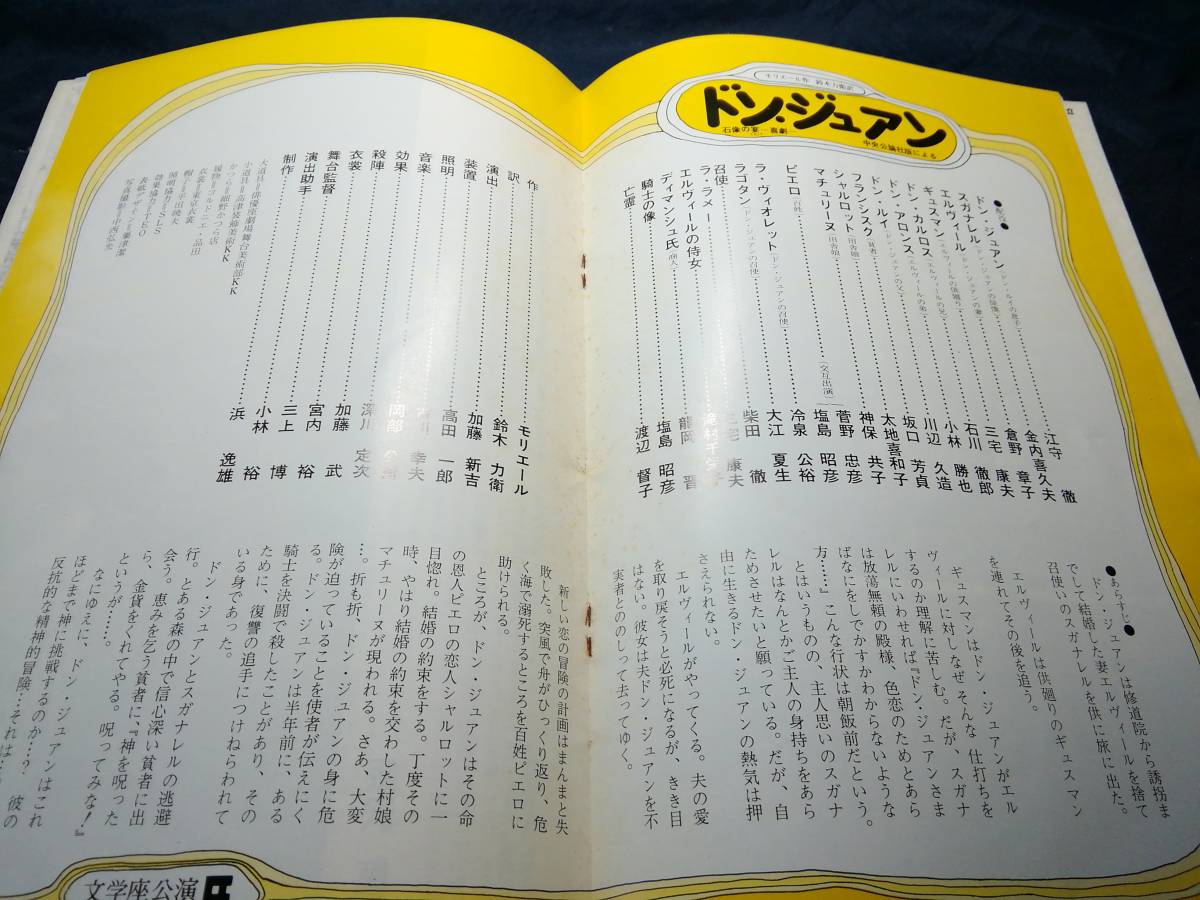 モリエール作 鈴木力衛訳
ドン・ジュアン
石像の宴―喜劇
中央公論社版による
●配役●
ドン・ジュアン(ドン・ルイの息子)……江守 徹
スガナレル(ドン・ジュアンの従僕)……金内喜久夫
エルヴィール(ドン・ジュアンの妻)……倉野 章子
ギュスマン(エルヴィールの供廻り)……三宅 康夫
ドン・カルロス(エルヴィールの兄)……石川 徹郎
ドン・アロンス(エルヴィールの弟)……小林 勝也
ドン・ルイ(ドン・ジュアンの父)……川辺 久造
フランシスク(貧者)……坂口 芳貞
シャルロット(田舎娘)……太地喜和子
マチュリーヌ(田舎娘)……神保 共子
ピエロ(百姓)……(交互出演) 菅野 忠彦
塩島 昭彦
ラ・ヴィオレット(ドン・ジュアンの召使)……冷泉 公裕
ラゴタン(ドン・ジュアンの召使)……大江 夏生
召使……柴田 徹
ラ・ラメー……三宅 康夫
エルヴィールの侍女……滝村
ディマンシュ氏(商人)……龍岡 晋
騎士の像……塩島 昭彦
亡霊……渡辺 督子
作……モリエール
訳……鈴木 力衛
演出……加藤 新吉
装置……高田 一郎
照明……川 幸夫
音楽……岡部
効果……深川 定次
殺陣……加藤 武
衣裳……宮内 裕
舞台監督……三上 博
演出助手……小林 裕
制作……浜 逸雄
大道具=俳優座劇場舞台美術部KK
小道具=高津装飾美術KK
かつら=細野かつら店
履物=アルドニエ・品田
衣裳=東京衣裳
帽子=平田暁夫
照明協力=SLS
効果協力=TEO
表紙デザイン=粟津潔
写真撮影=中西弘光
●あらすじ●
ドン・ジュアンは修道院から誘拐ま
でして結婚した妻エルヴィールを捨て
召使いのスガナレルを供に旅に出た。
エルヴィールは供廻りのギュスマン
を連れてその後を追う。
ギュスマンはドン・ジュアンがエル
ヴィールに対しなぜそんな仕打ちを
するのか理解に苦しむ。だが、スガナ
レルにいわせれば『ドン・ジュアンさま
は放蕩無頼の殿様、色恋のためとあら
ばなにをしでかすかわからないような
方……』こんな行状は朝飯前だという。
とはいうものの、主人思いのスガナ
レルはなんとかご主人の身持ちをあら
ためさせたいと願っている。だが、自
由に生きるドン・ジュアンの熱気は押
さえられない。
エルヴィールがやってくる。夫の愛
を取り戻そうと必死になるが、きき目
はない。彼女は夫ドン・ジュアンを不
実者とののしって去ってゆく。
新しい恋の冒険の計画はまんまと失
敗した。突風で舟がひっくり返り、危
く海で溺死するところを百姓ピエロに
助けられる。
ところが、ドン・ジュアンはその命
の恩人ピエロの恋人シャルロットに一
目惚れ。結婚の約束をする。丁度その
時、やはり結婚の約束を交わした村娘
マチュリーヌが現われる。さあ、大変
…。折も折、ドン・ジュアンの身に危
険が迫っていることを使者が伝えにく
る。ドン・ジュアンは半年前に、ある
騎士を決闘で殺したことがあり、その
ために、復讐の追手につけねらわれて
いる身であった。
ドン・ジュアンとスガナレルの逃避
行。とある森の中で信心深い貧者に出
会う。恵みを乞う貧者に、『神を呪った
ら、金貨をくれてやる。呪ってみな!』
というが……。
なにゆえに、ドン・ジュアンはこれ
ほどまで神に挑戦するのか…?
反抗的な精神的冒険…それは 彼の
文学座公演